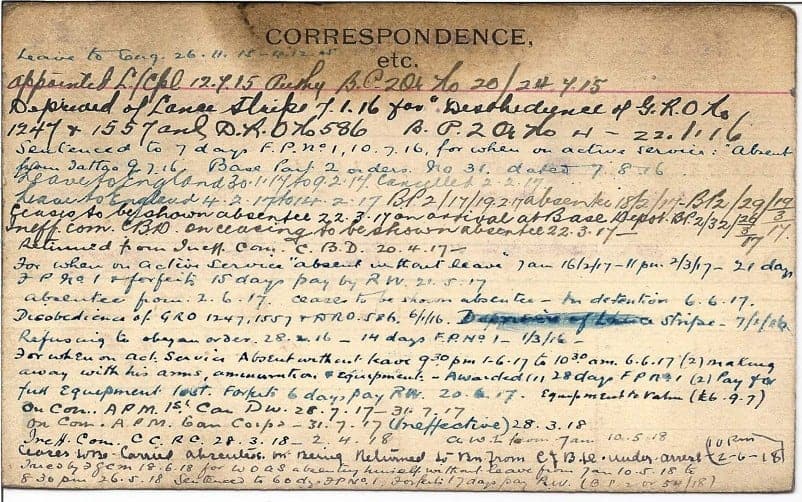 CORRESPONDENCE,
etc.
Leave to Eng. 26.11.15 - 4.12.15
appointed L/Cpl 12.7.15 B.P. 2 Or No 20/24.7.15
Deprived of Lance Stripe 7.1.16 for "Disobedience of G.R.O No
1247 & 1557 and D.R.O No 586 B.P. 2 Or No 4 - 22.1.16
Sentenced to 7 days F.P. No 1, 10.7.16, for when on active service: "Absent
from Tattoo 9.7.16. Base Part 2 orders. No 31. dated 7.8.16
Leave to England 30.1.17 to 9.2.17. Cancelled 2.2.17
Leave to England 4.2.17 to 14.2.17 BP2/17/19.2.17 absentee 18/2/17 - BP2/29/19/3/17.
Ceases to be shown absentee 22.3.17 on arrival at Base Depot. BP2/32/26/3/17
Ineff. com. C.B.D. on ceasing to be shown absentee 22.3.17 -
Returned from Ineff. Com. C.B.D. 20.4.17 -
For when on Active Service "absent without leave" 7am 16/2/17 - 11pm 2/3/17 - 21 days
F.P. No 1 & forfeits 15 days pay by R.W. 21.5.17
absentee from. 2.6.17. ceases to be shown absentee - In detention 6.6.17.
Disobedience of GRO 1247, 1557 & ARO. 586. 6/1/16. Deprived of Lance Stripe - 7/1/16
Refusing to obey an order. 28.2.16 - 14 days F.P. No 1 - 1/3/16 -
For when on Act. Service Absent without leave 9.30 pm 1-6.17 to 10.30 am. 6.6.17 (2) making
away with his arms, ammunition & equipment. - Awarded (1) 28 days F P No 1 (2) Pay for
full Equipment lost. Forfeits 6 days pay RW. 20.6.17. Equipment to Value (£6.9.7)
On Com. A.P.M. 1st Can Div. 28.7.17 - 31.7.17
on Com. A.P.M. Can Corps - 31.7.17 (Ineffective) 28.3.18
Ineff. Com. C.C.R.C. 28.3.18 - 2.4.18 A.W.L. from 7am 10.5.18
Ceases to be Carried absentee on Being Returned to Bn from under arrest (2-6-18)
Tried by F.G.C.M 18.6.18 for W O A S absenting himself without leave from 7am 10.5.18 to
8.30 pm 26.5.18 Sentenced to 60 days F.P No 1, Forfeits 17 days pay R.W. (B.P. 2 or 54/18)